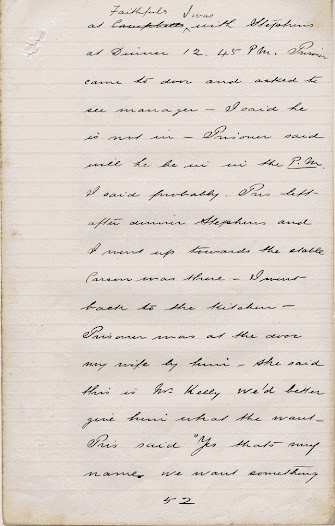 Faithfuls I was
at Campbells, with Stephens
at Dinner 12.45 P.M. Prisoner
came to door and asked to
see manager – I said he
is not in – Prisoner said
will he be in in the P.M.
I said probably. Pris left
after dinner Stephens and
I went up towards the stable
Carson was there – I went
back to the kitchen –
Prisoner was at the door
my wife by him – She said
this is Mr Kelly we'd better
give him what the want –
Pris said "Yes thats my
name. we want something
52